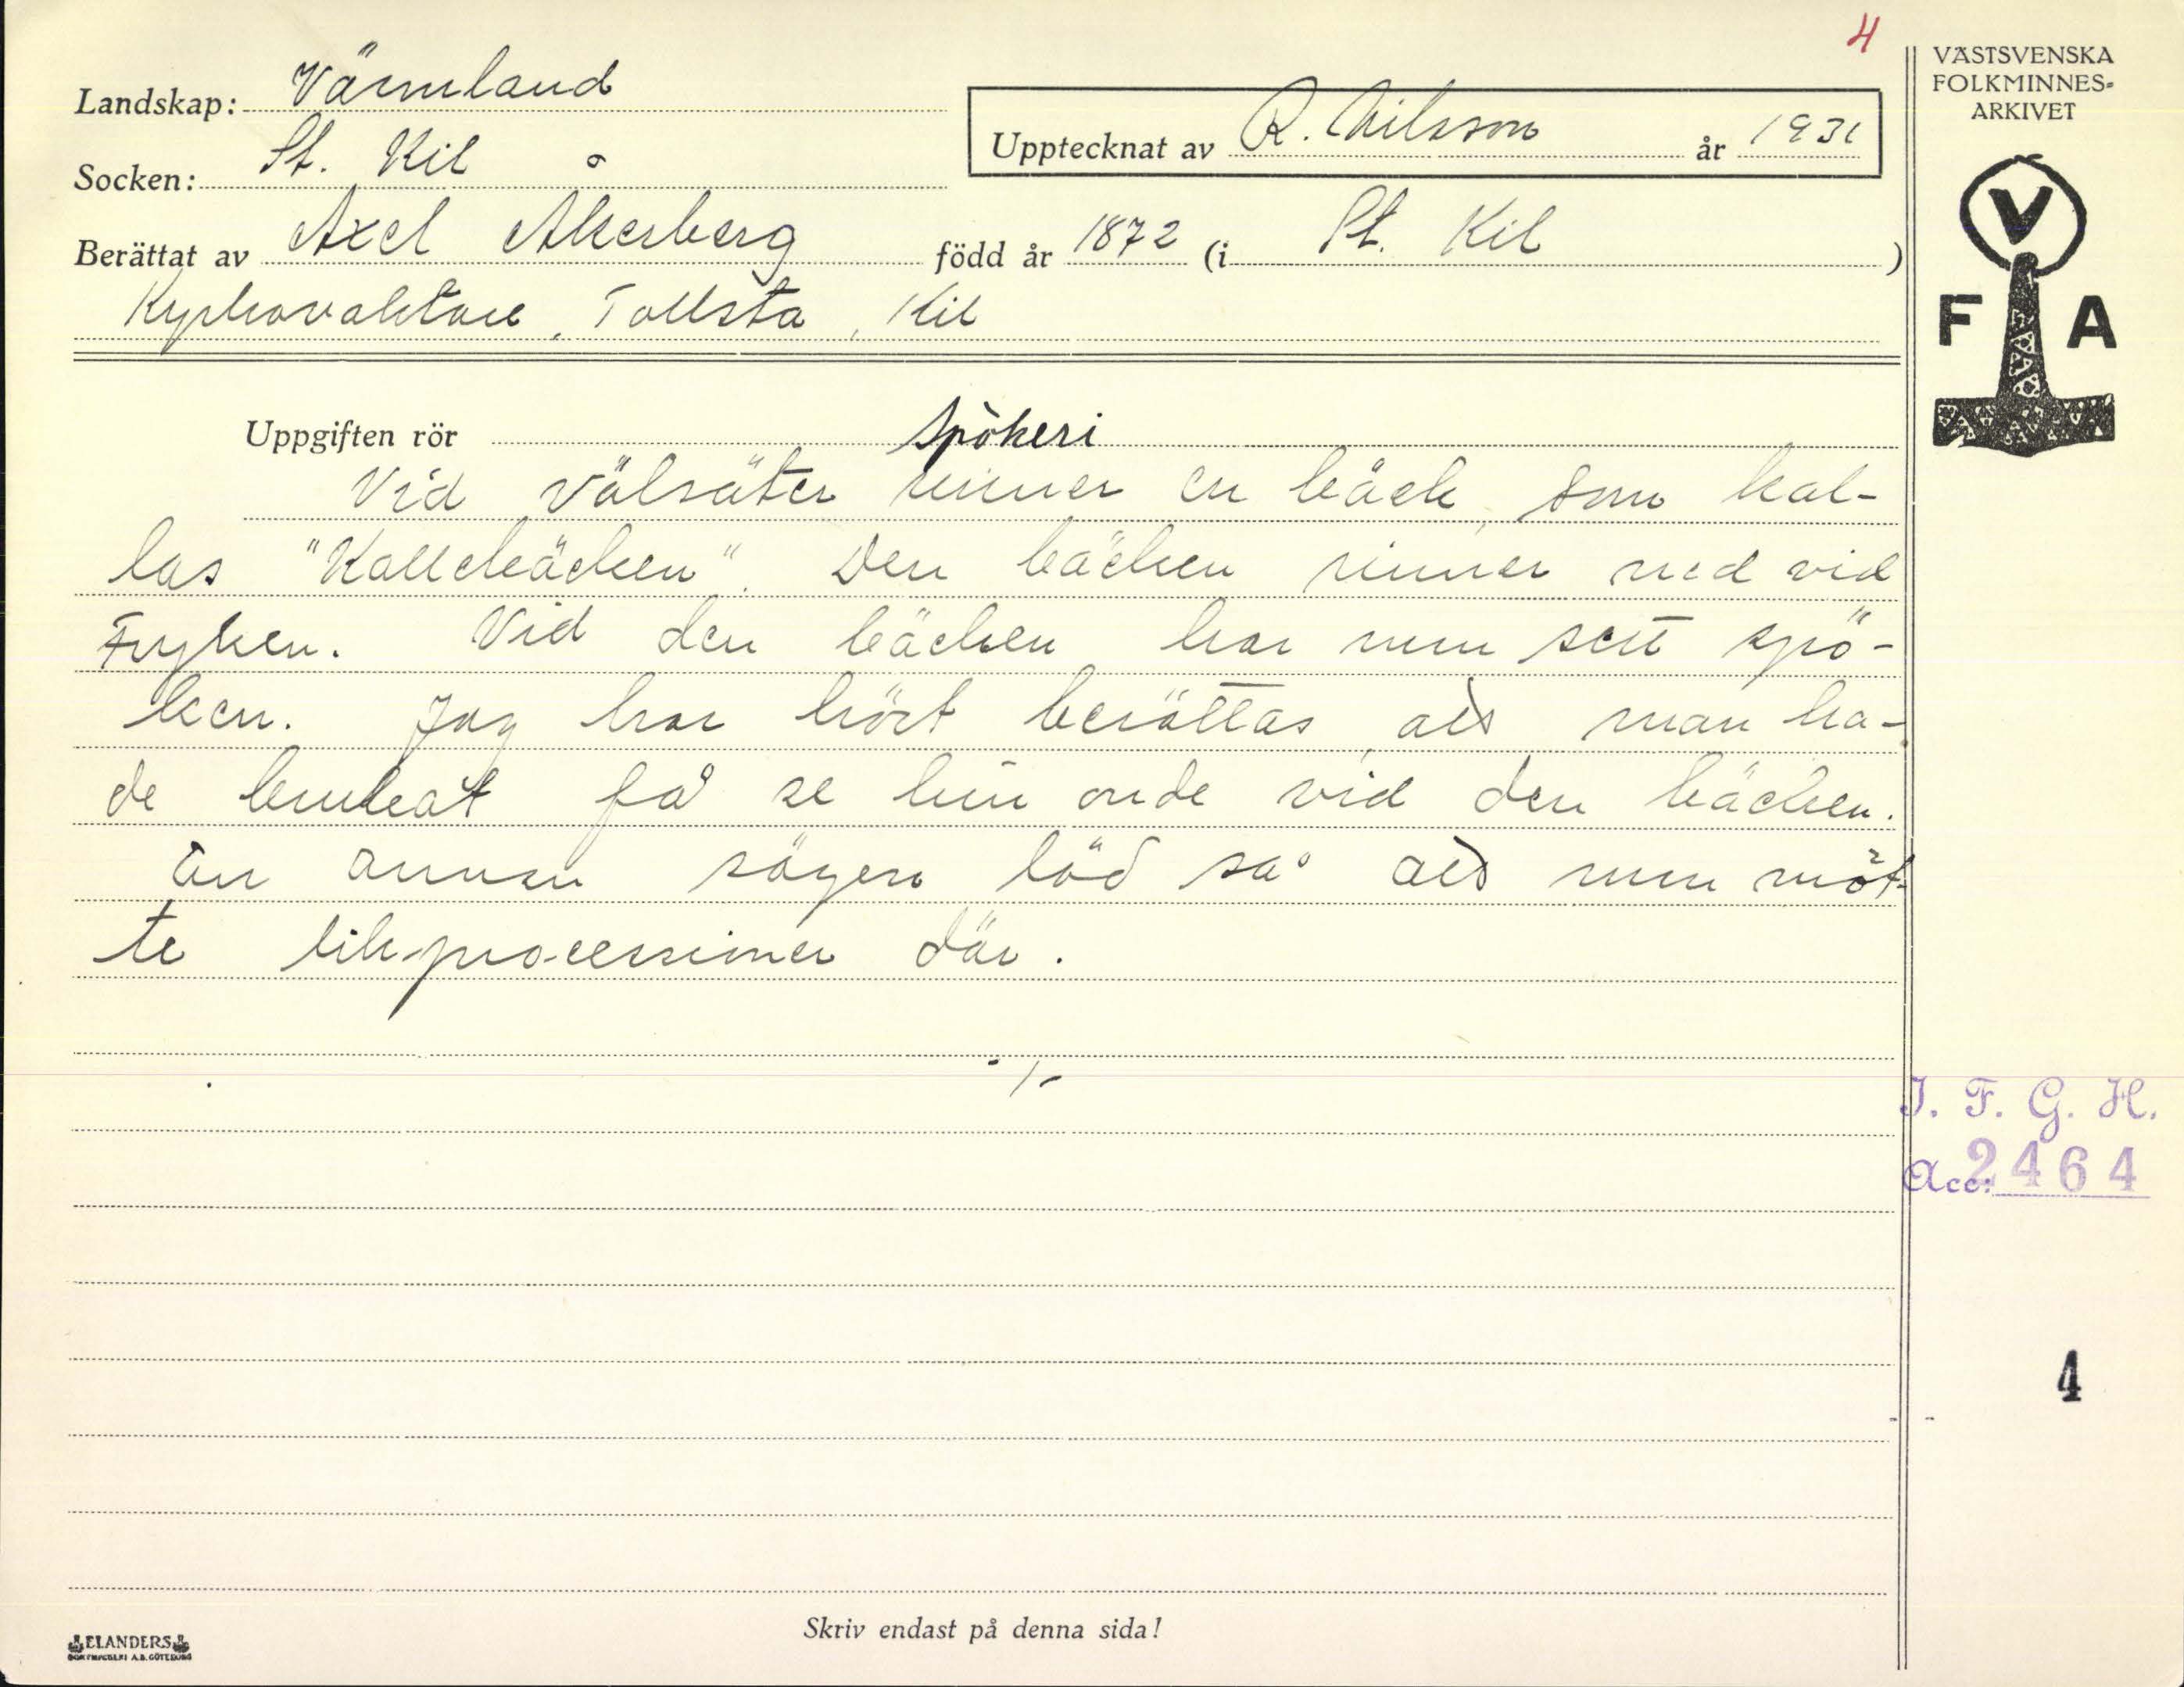 4
Landskap: Värmland
Socken: St. Kil
Upptecknat av R. Nilsson år 1931
Berättat av Axel Åkerberg född år 1872 (i St. Kil )
Kyrkovaktare, Tollsta, Kil
VÄSTSVENSKA
FOLKMINNES-
ARKIVET
V
F A
Uppgiften rör Spökeri
Vid Välsäter rinner en bäck, som kal-
las "Kallebäcken". Den bäcken rinner ned vid
Fryken. Vid den bäcken har men sett spö-
ken. Jag har hört berättas, att man ha-
de brukat få se hin onde vid den bäcken.
En annan sägen löd så att men möt-
te lik-processioner där.
-/-
I. F. G. H.
Acc. 2464
4
Skriv endast på denna sida!
ELANDERS
BOKTRYCKERI A.B. GÖTEBORG